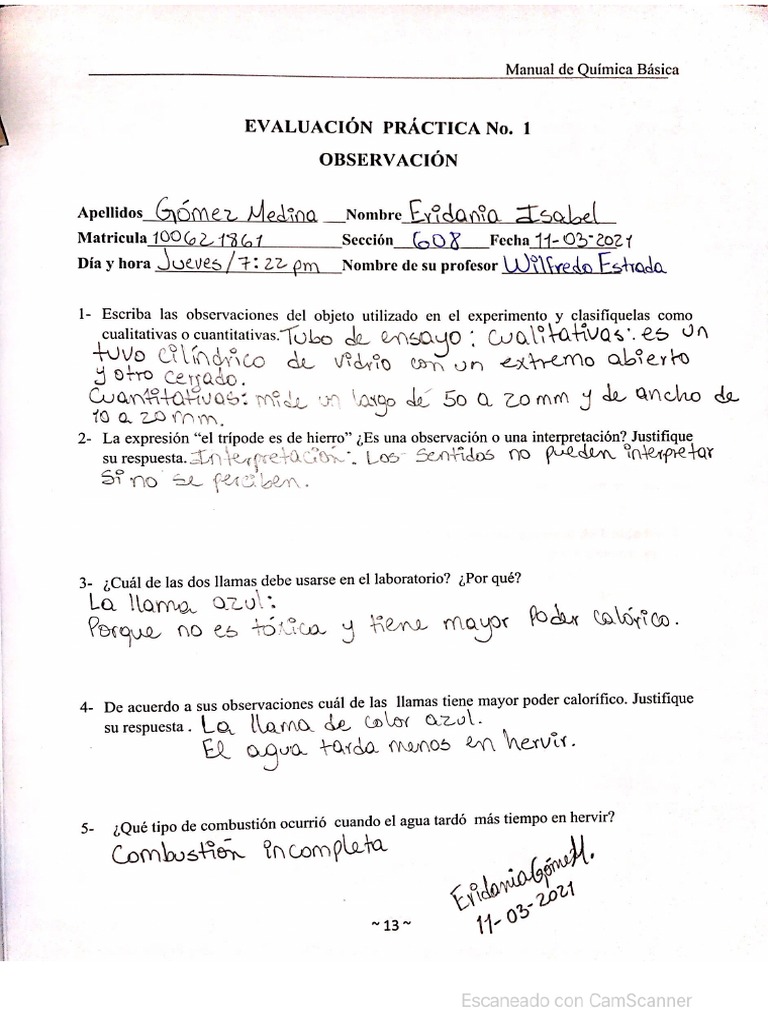 Manual de Química Básica
EVALUACIÓN PRÁCTICA No. 1
OBSERVACIÓN
Apellidos Gómez Medina Nombre Eridania Isabel
Matricula 100621861 Sección 608 Fecha 11-03-2021
Día y hora Jueves/7:22 pm Nombre de su profesor Wilfredo Estrada
1- Escriba las observaciones del objeto utilizado en el experimento y clasifíquelas como
cualitativas o cuantitativas. Tubo de ensayo: Cualitativas: es un
tuvo cilíndrico de vidrio con un extremo abierto
y otro cerrado.
Cuantitativas: mide un largo de 50 a 20mm y de ancho de
10 a 20mm.
2- La expresión “el trípode es de hierro” ¿Es una observación o una interpretación? Justifique
su respuesta. Interpretación: Los sentidos no pueden interpretar
Si no se perciben.
3- ¿Cuál de las dos llamas debe usarse en el laboratorio? ¿Por qué?
La llama azul:
Porque no es tóxica y tiene mayor Poder calórico.
4- De acuerdo a sus observaciones cuál de las llamas tiene mayor poder calorífico. Justifique
su respuesta . La llama de color azul.
El agua tarda menos en hervir.
5- ¿Qué tipo de combustión ocurrió cuando el agua tardó más tiempo en hervir?
Combustión incompleta
Eridania Gómez M.
11-03-2021
~ 13 ~
Escaneado con CamScanner